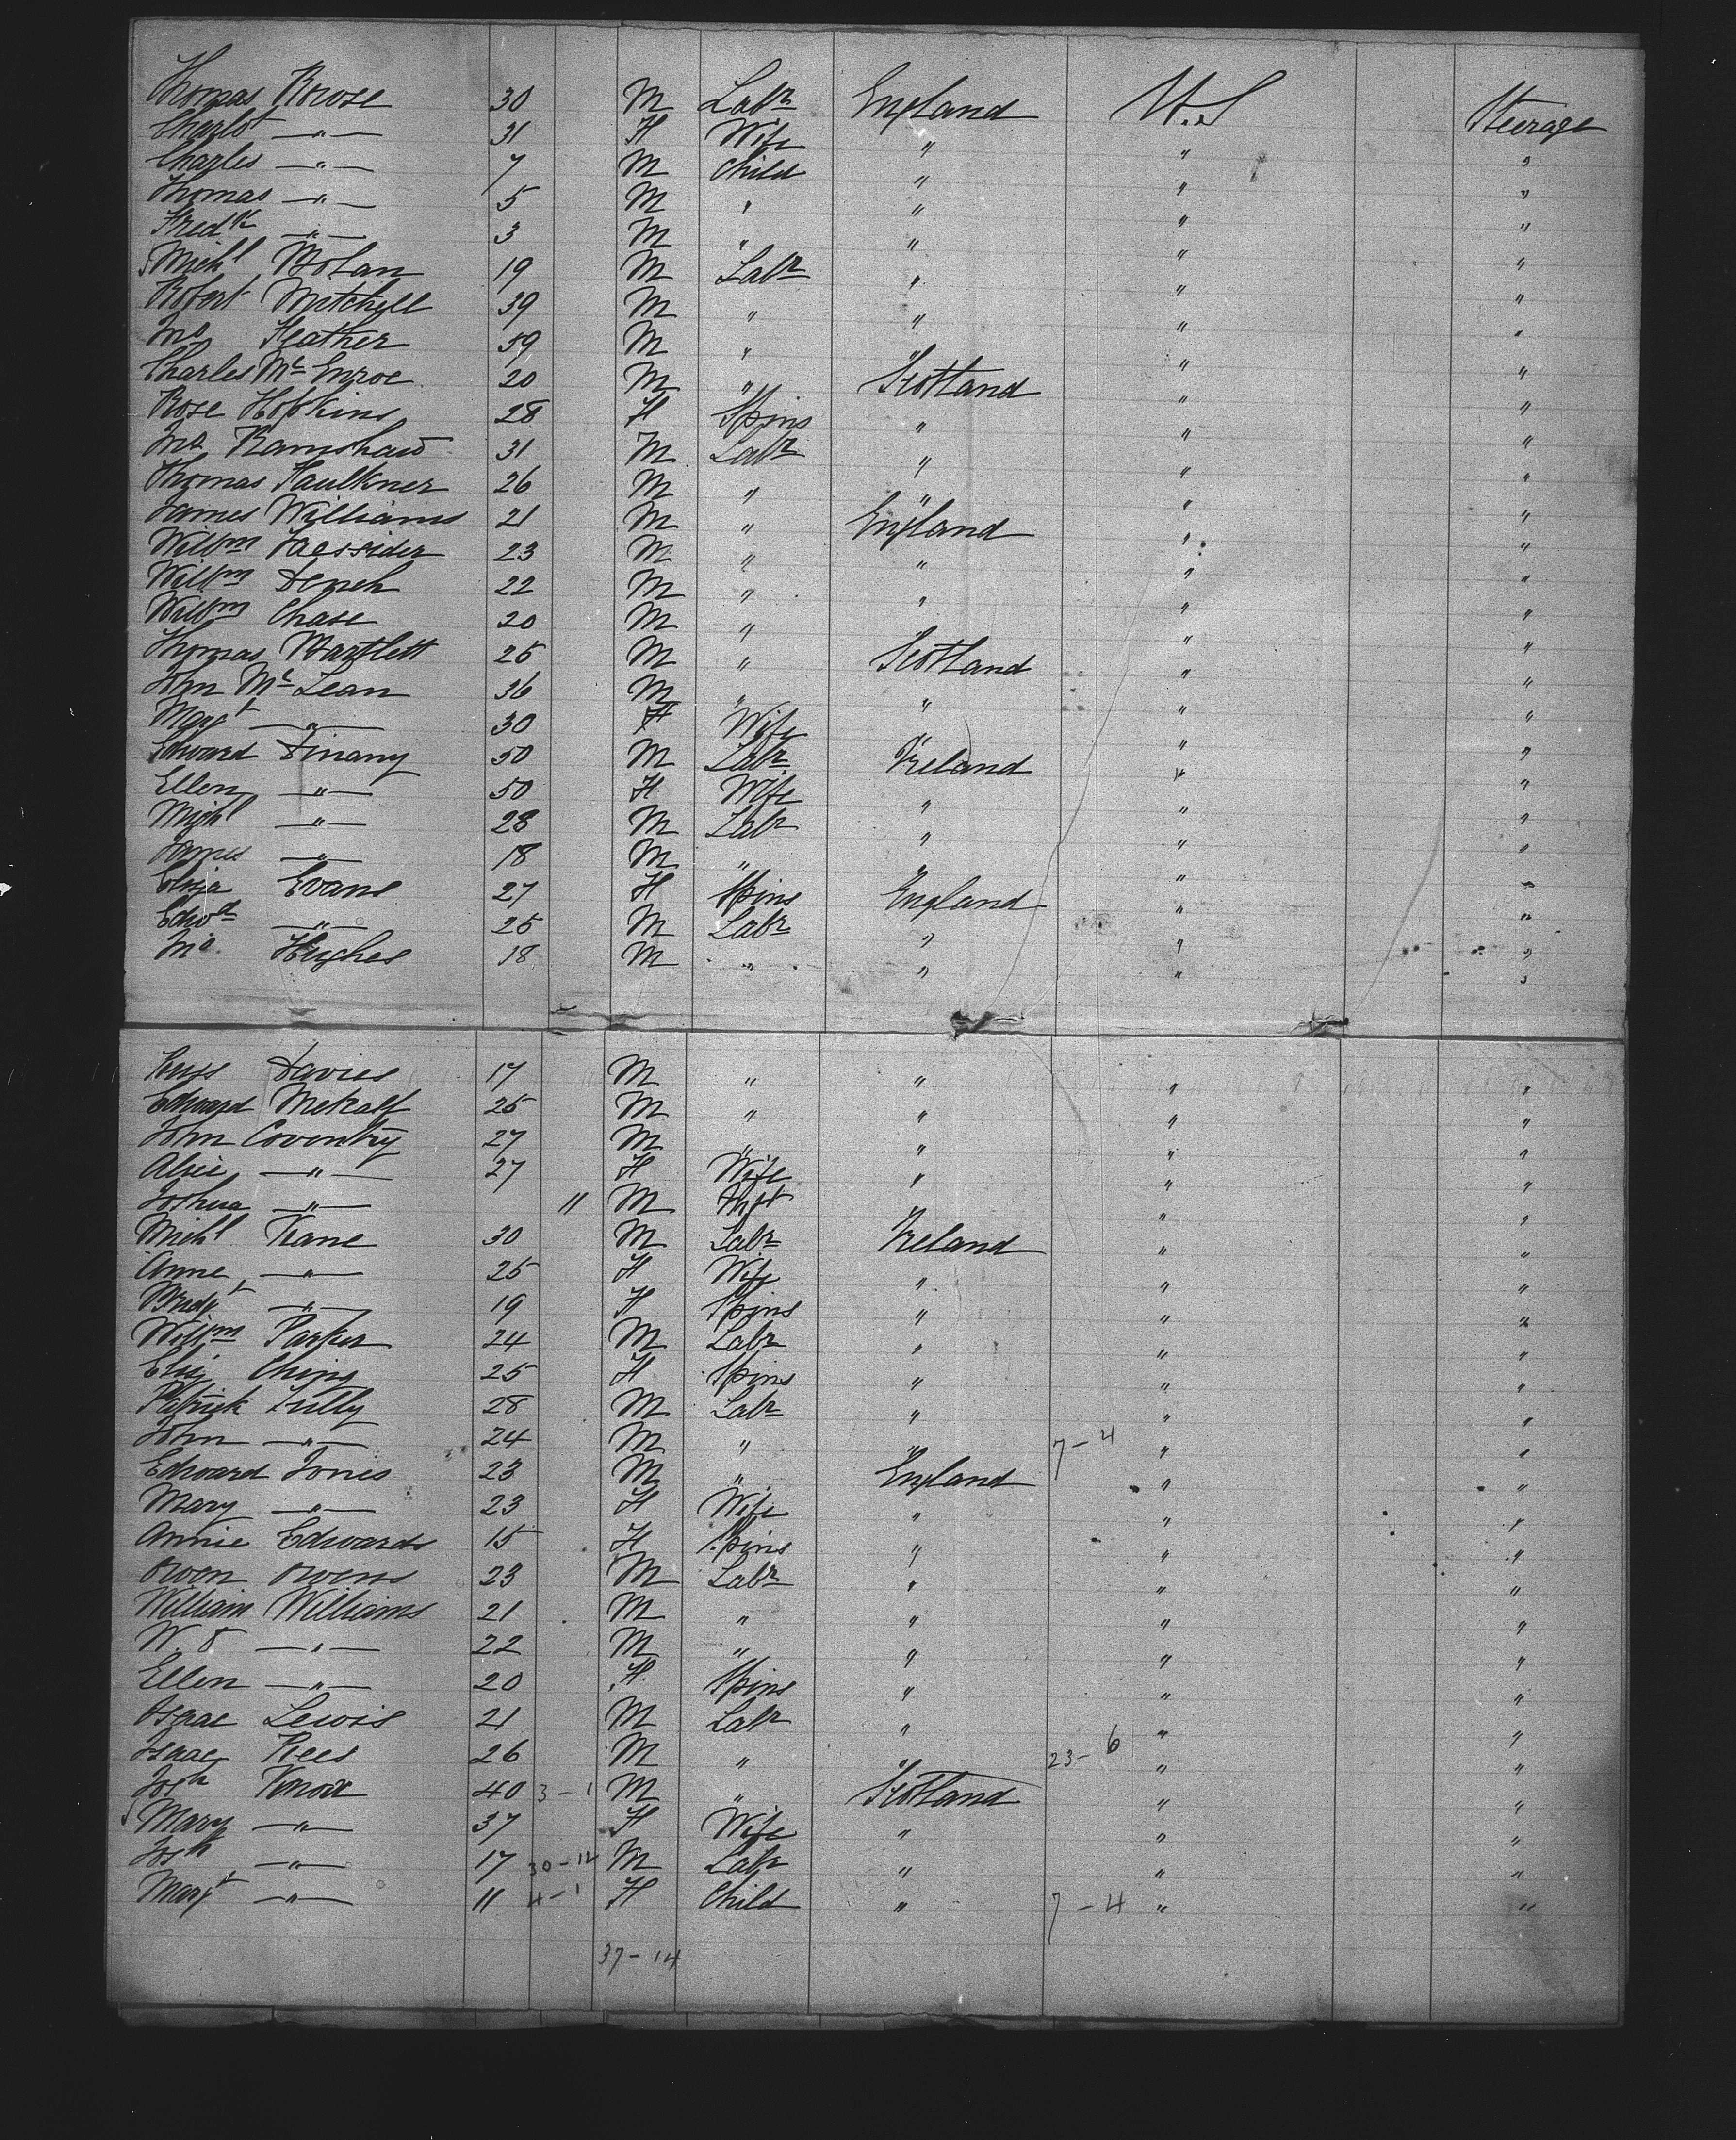 Thomas Rowse 30 M Labr England U.S Steerage
Charlot —"— 31 F Wife " " "
Charles —"— 7 M Child " " "
Thomas —"— 5 M " " " "
Fredk —"— 3 M " " " "
Michl Bolan 19 M Labr " " "
Robert Mitchell 39 M " " " "
Jno Heather 59 M " " " "
Charles Mc Enroe 20 M " Scotland " "
Rose Hopkins 28 F Spins " " "
Jno Ramshaw 31 M Labr " " "
Thomas Faulkner 26 M " " " "
James Williams 21 M " England " "
Willm 23 M " " " "
Willm Dench 22 M " " " "
Willm Chase 20 M " " " "
Thomas Bartlett 25 M " Scotland " "
John Mc Lean 36 M " " " "
Margt —"— 30 F Wife " " "
Edward Finany 50 M Labr Ireland " "
Ellen —"— 50 F Wife " " "
Michl —"— 28 M Labr " " "
James —"— 18 M " " " "
Eliza Evans 27 F Spins England " "
Edwd —"— 25 M Labr " " "
Jno Hughes 18 M " " " "
Rees Davies 17 M " " " "
Edward Metcalf 25 M " " " "
John Coventry 27 M " " " "
Alice —"— 27 F Wife " " "
Joshua —"— 11 M Inft " " "
Michl Kane 30 M Labr Ireland " "
Anne —"— 25 F Wife " " "
Bridgt —"— 19 F Spins " " "
Willm Parker 24 M Labr " " "
Eliz Ching 25 F Spins " " "
Patrick Tully 28 M Labr " " "
John —"— 24 M " " 7-4 " "
Edward Jones 23 M " England " "
Mary —"— 23 F Wife " " "
Annie Edwards 15 F Spins " " "
Owen Owens 23 M Labr " " "
William Williams 21 M " " " "
W. O —"— 22 M " " " "
Ellen —"— 20 F Spins " " "
Isaac Lewis 21 M Labr " " "
Isaac Rees 26 M " " 23-6 " "
Josh Knox 40 3-1 M " Scotland " "
Mary —"— 37 F Wife " " "
Josh —"— 17 30-12 M Labr " " "
Margt —"— 11 4-1 F Child " 7-4 " "
37-14